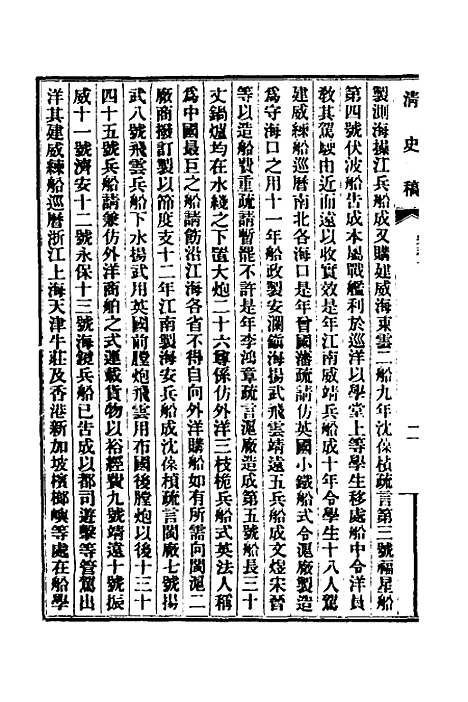 清史稿
二
製測海操江兵船成又購建威海東雲二船九年沈葆楨疏言第三號福星船
第四號伏波船告成本屬戰艦利於巡洋以學堂上等學生移處船中令洋員
教其駕駛由近而遠以收實效是年江南威靖兵船成十年令學生十八人駕
建威練船巡歷南北各海口是年曾國藩疏請仿英國小鐵船式令滬廠製造
爲守海口之用十一年船政製安瀾鎭海揚武飛雲靖遠五兵船成文煜宋晉
等以造船費重疏請暫罷不許是年李鴻章疏言滬廠造成第五號船長三十
丈鍋爐均在水綫之下置大炮二十六尊係仿外洋三枝桅兵船式英法人稱
爲中國最巨之船請飭沿江海各省不得自向外洋購船如有所需向閩滬二
廠商撥訂製以節度支十二年江南製海安兵船成沈葆楨疏言閩廠七號揚
武八號飛雲兵船下水揚武用英國前膛炮飛雲用布國後膛炮以後十三十
四十五號兵船請兼仿外洋商舶之式運載貨物以裕經費九號靖遠十號振
威十一號濟安十二號永保十三號海鏡兵船已告成以都司遊擊等管駕出
洋其建威練船巡歷浙江上海天津牛莊及香港新加坡檳榔嶼等處在船學